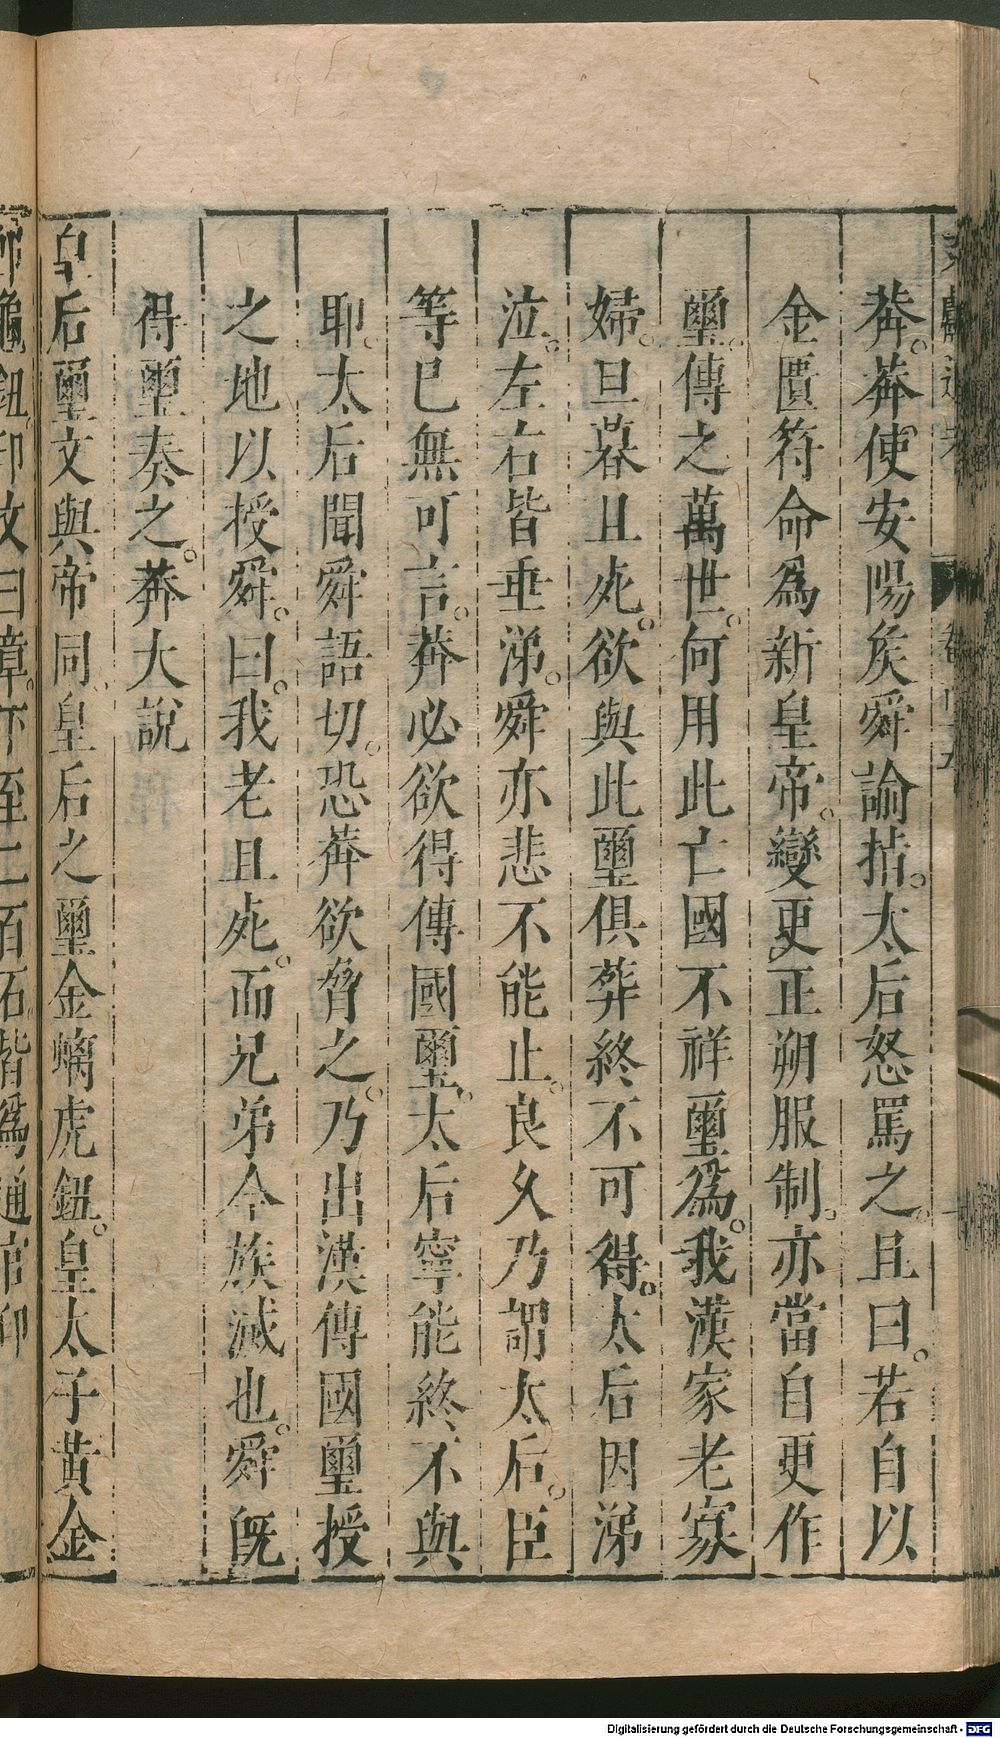 莽。莽使安陽矦舜諭指。太后怒罵之。且曰。若自以
金匱符命爲新皇帝。變更正朔服制。亦當自更作
璽。傳之萬世。何用此亡國不祥璽爲。我漢家老寡
婦。旦暮且死。欲與此璽俱葬終不可得。太后因涕
泣。左右皆垂涕。舜亦悲不能止。良久乃謂太后。臣
等已無可言。莽必欲得傳國璽。太后寧能終不與
耶。太后聞舜語切。恐莽欲脅之。乃出漢傳國璽授
之地以授舜。曰。我老且死。而兄弟今族滅也。舜旣
得璽奏之。莽大說
皇后璽文與帝同。皇后之璽金螭虎鈕。皇太子黃金
龜鈕。印文曰章。下至二百石。皆爲通官印
Digitalisierung gefördert durch die Deutsche Forschungsgemeinschaft - DFG